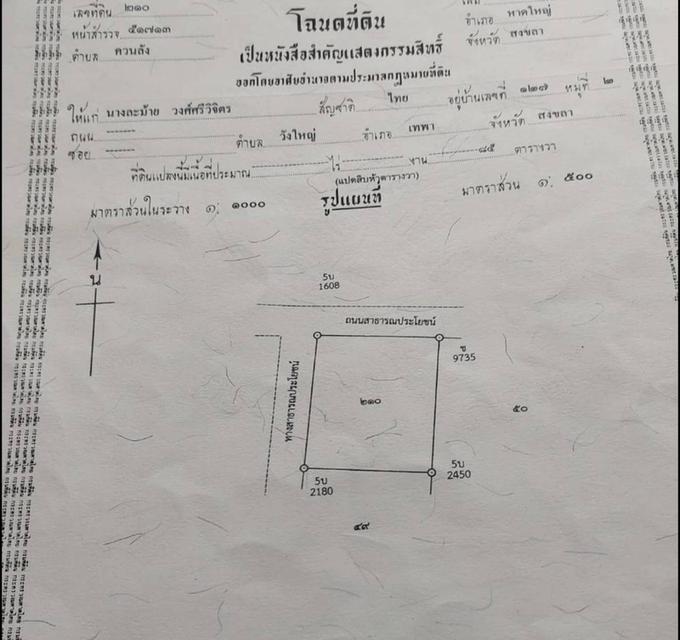 เลขที่ดิน ๒๑๐
โฉนดที่ดิน
หน้าสำรวจ ๕๑๗๑๓
อำเภอ หาดใหญ่
ตำบล ควนลัง
เป็นหนังสือสำคัญแสดงกรรมสิทธิ์
จังหวัด สงขลา
ออกโดยอาศัยอำนาจตามประมวลกฎหมายที่ดิน
ให้แก่ นางละม้าย วงศ์ศรีวิจิตร สัญชาติ ไทย อยู่บ้านเลขที่ ๑๒๘๗ หมู่ที่ ๒
ถนน ------ ตำบล วังใหญ่ อำเภอ เทพา จังหวัด สงขลา
ซอย ------
ที่ดินแปลงนี้มีเนื้อที่ประมาณ ---------- ไร่ ---------- งาน ---------- ๘๕ ตารางวา
(แปดสิบห้าตารางวา)
มาตราส่วนในระวาง ๑: ๑๐๐๐
รูปแผนที่
มาตราส่วน ๑: ๕๐๐
น
5บ
1608
ถนนสาธารณประโยชน์
ช
9735
ทางสาธารณประโยชน์
๒๑๐
๕๐
5บ
2180
5บ
2450
๔๙